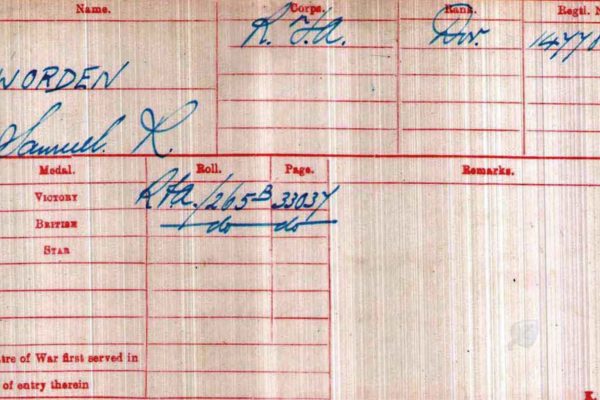 Name. Corps. Rank. Regtl. N
R. F.A. Dvr. 1477
WORDEN
Samuel. R.
Medal. Roll. Page. Remarks.
VICTORY RFA/265B 33037
BRITISH do do
STAR
tre of War first served in
of entry therein
K.